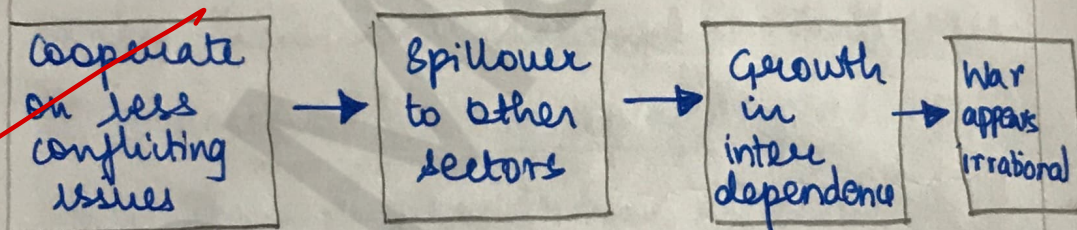 Cooperate
on less
conflicting
issues
Spillover
to other
sectors
Growth
in
inter
dependence
War
appears
irrational